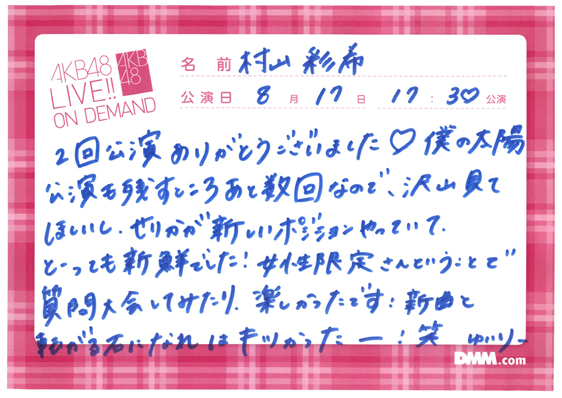 AKB48
LIVE!!
ON DEMAND
AKB
48
名前 村山彩希
公演日 8月17日 17:30公演
2回公演ありがとうございました♡僕の太陽
公演も残すところあと数回なので、沢山見て
ほしいし、せりかが新しいポジションやっていて、
とーっても新鮮でした!女性限定さんということで
質問大会してみたり、楽しかったです!新曲と
転がる石になれはキツかったー!笑 ゆいりー
DMM.com